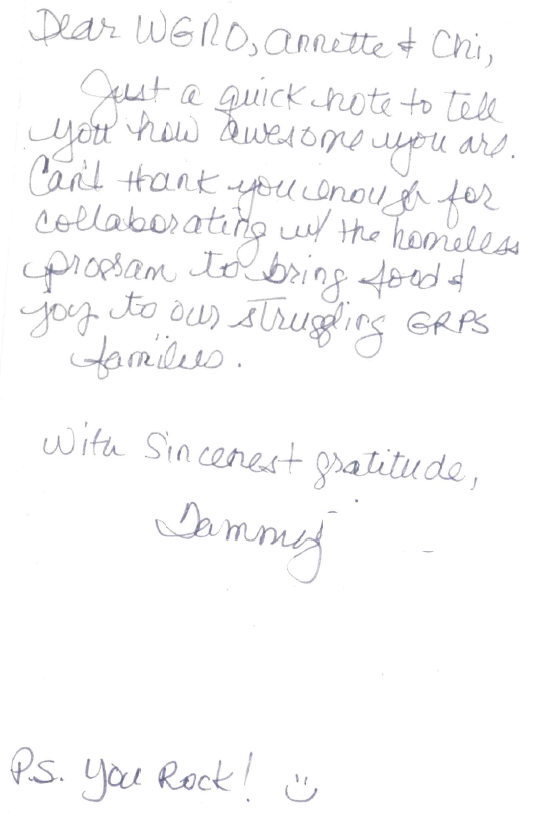 Dear WGRO, Annette & Chi,
Just a quick note to tell
you how awesome you are.
Can't thank you enough for
collaborating w/ the homeless
program to bring food &
joy to our struggling GRPS
families.
With Sincerest gratitude,
Tammy
P.S. You Rock! :)